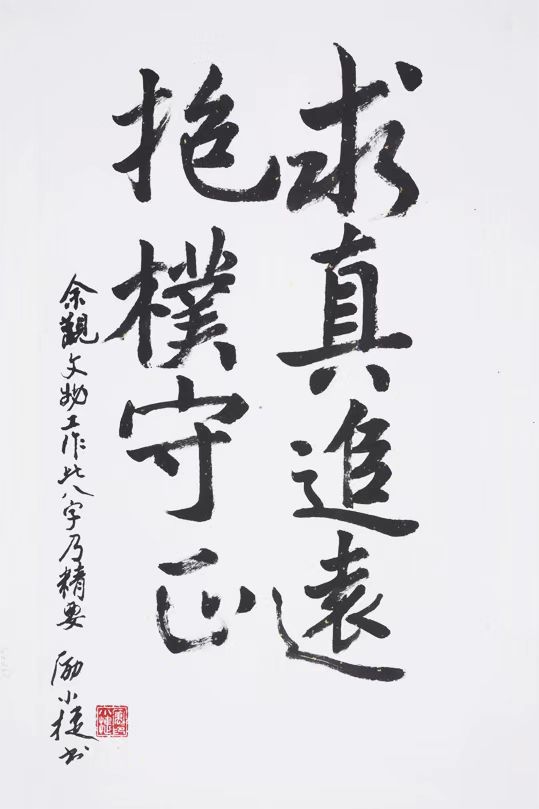 求真追遠
抱樸守正
余觀文物工作此八字乃精要 励小捷书